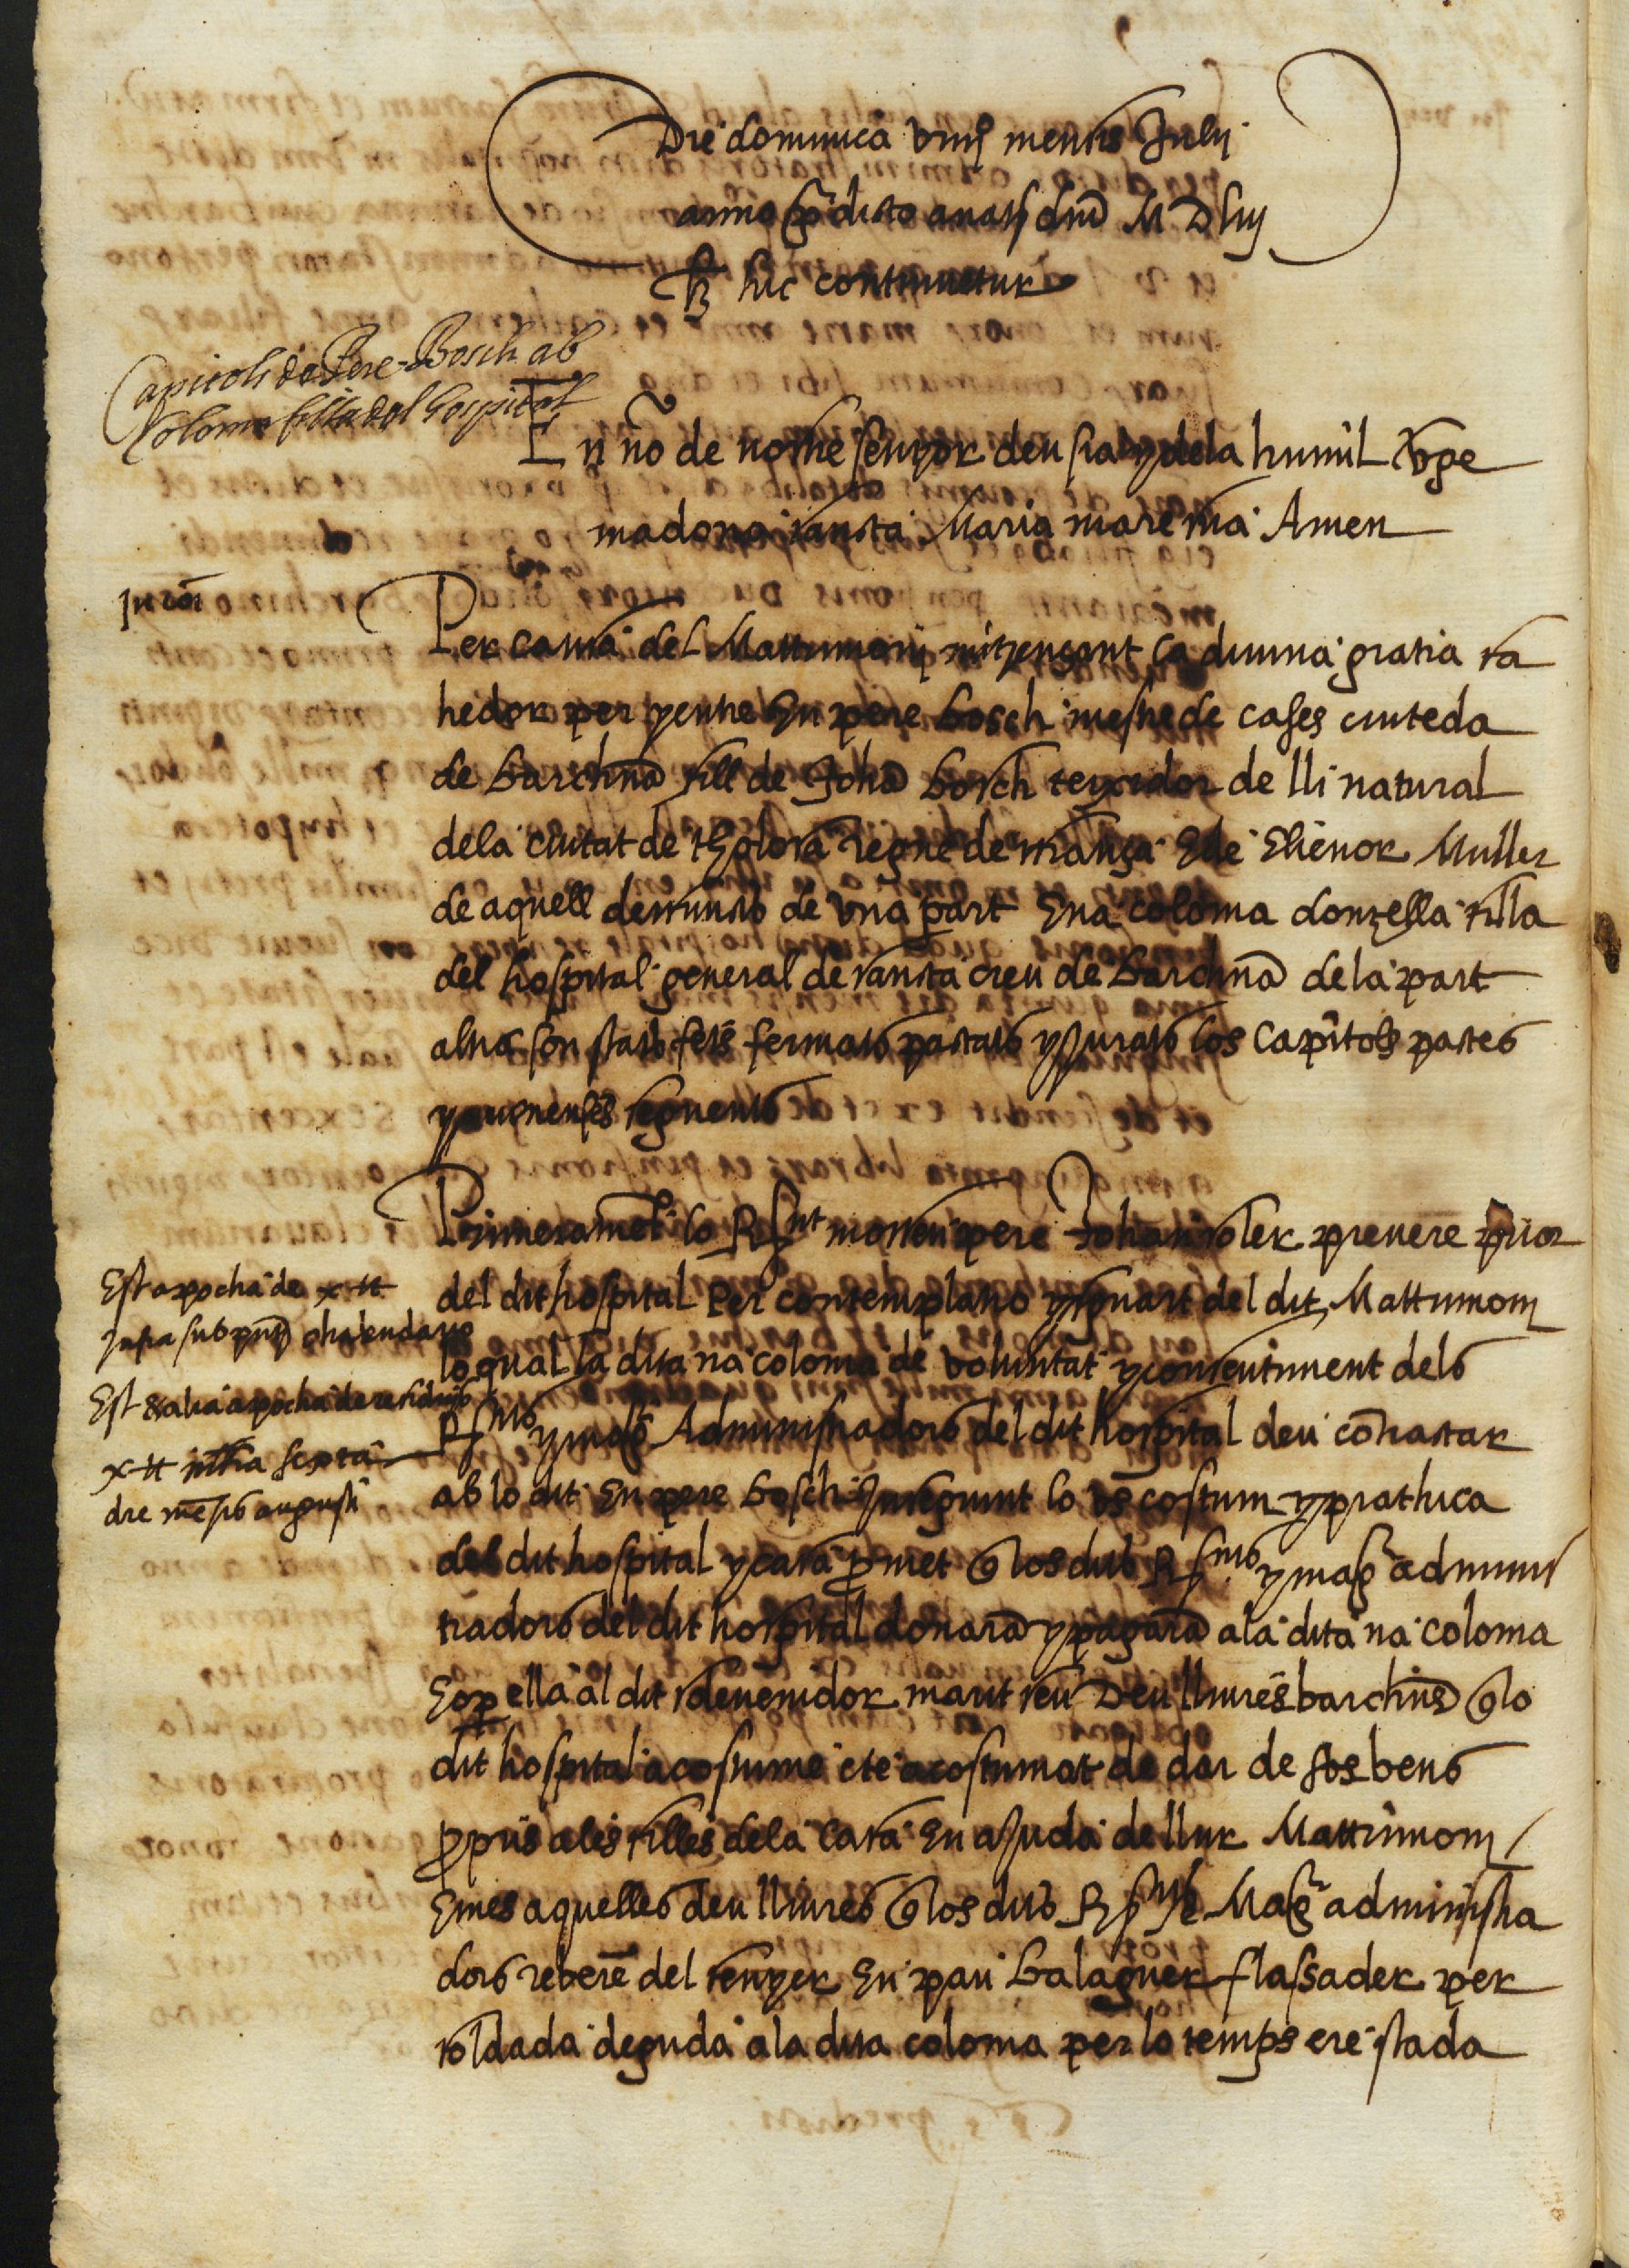 Die dominica viiij mensis Julij
anno predicto a natt dnj M D Liij
hic continuetur
Capitols de Pere Bosch ab
Coloma filla del hospital
En no de nostre senyor deu sia y dela humil vge
madona sancta Maria mare sua Amen
Jurat
Per causa del Matrimonj mitzençant la diuina gratia fa
hedor per y entre En pere bosch mestre de cases ciuteda
de barchna fill de Joha bosch teyxidor de lli natural
dela ciutat de tholosa regne de frança E de Elienor Muller
de aquell deffuncts de vna part E na coloma donzella filla
del hospital general de sancta creu de barchna dela part
altra son stats fets fermats pactats y jurats los capitols pactes
y auinenses seguents
Primeramet lo Rnt mossen pere Johan soler preuere prior
del dit hospital Per contemplatio y sguart del dit Matrimonj
lo qual la dita na coloma de voluntat y consentiment dels
Rsmos y mags Administradors del dit hospital deu contractar
ab lo dit En pere bosch Inseguint lo vs costum y prathica
del dit hospital y casa pmet q los dits Rsmos y mags adminis
tradors del dit hospital donara y pagara ala dita na coloma
E o p ella al dit sdeuenidor marit seu Deu lliures barchns q lo
dit hospital acostume e te acostumat de dar de sos bens
ppris a les filles dela casa En ajuda de llur Matrimonj /
E mes aquelles deu lliures q los dits Rsms e Mags administra
dors rebere del senyer En pau balaguer flassader per
soldada deguda ala dita coloma per lo temps ere stada
Est apocha de x ll
Jnfra sub pnti chalendario
Est & alia apocha de residuis
x ll infra sexta
die mesis augusti